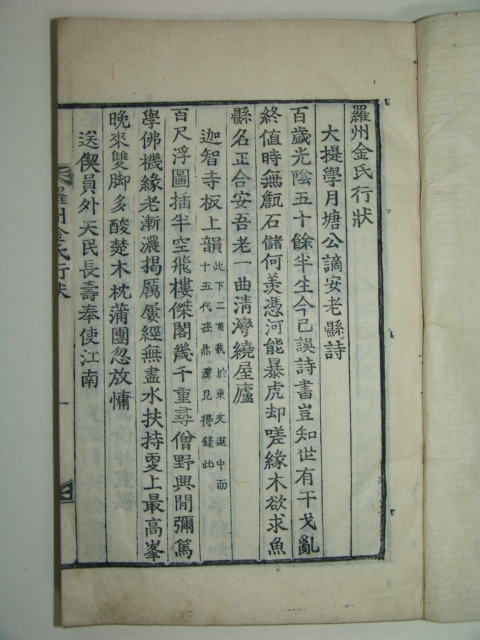 羅州金氏行狀
大提學月塘公謫安老縣詩
百歲光陰五十餘半生今已誤詩書豈知世有干戈亂
終值時無甔石儲何羨憑河能暴虎却嗟緣木欲求魚
縣名正合安吾老一曲淸灣繞屋廬
迦智寺板上韻此下二首載於東文選中而
十五代孫鼎漢見得錄此
百尺浮圖插半空飛樓傑閣幾千重尋僧野興閒彌篤
學佛機緣老漸濃揭厲屢經無盡水扶持更上最高峯
晩來雙脚多酸楚木枕蒲團忽放慵
送偰員外天民長壽奉使江南
羅州金氏行狀
一